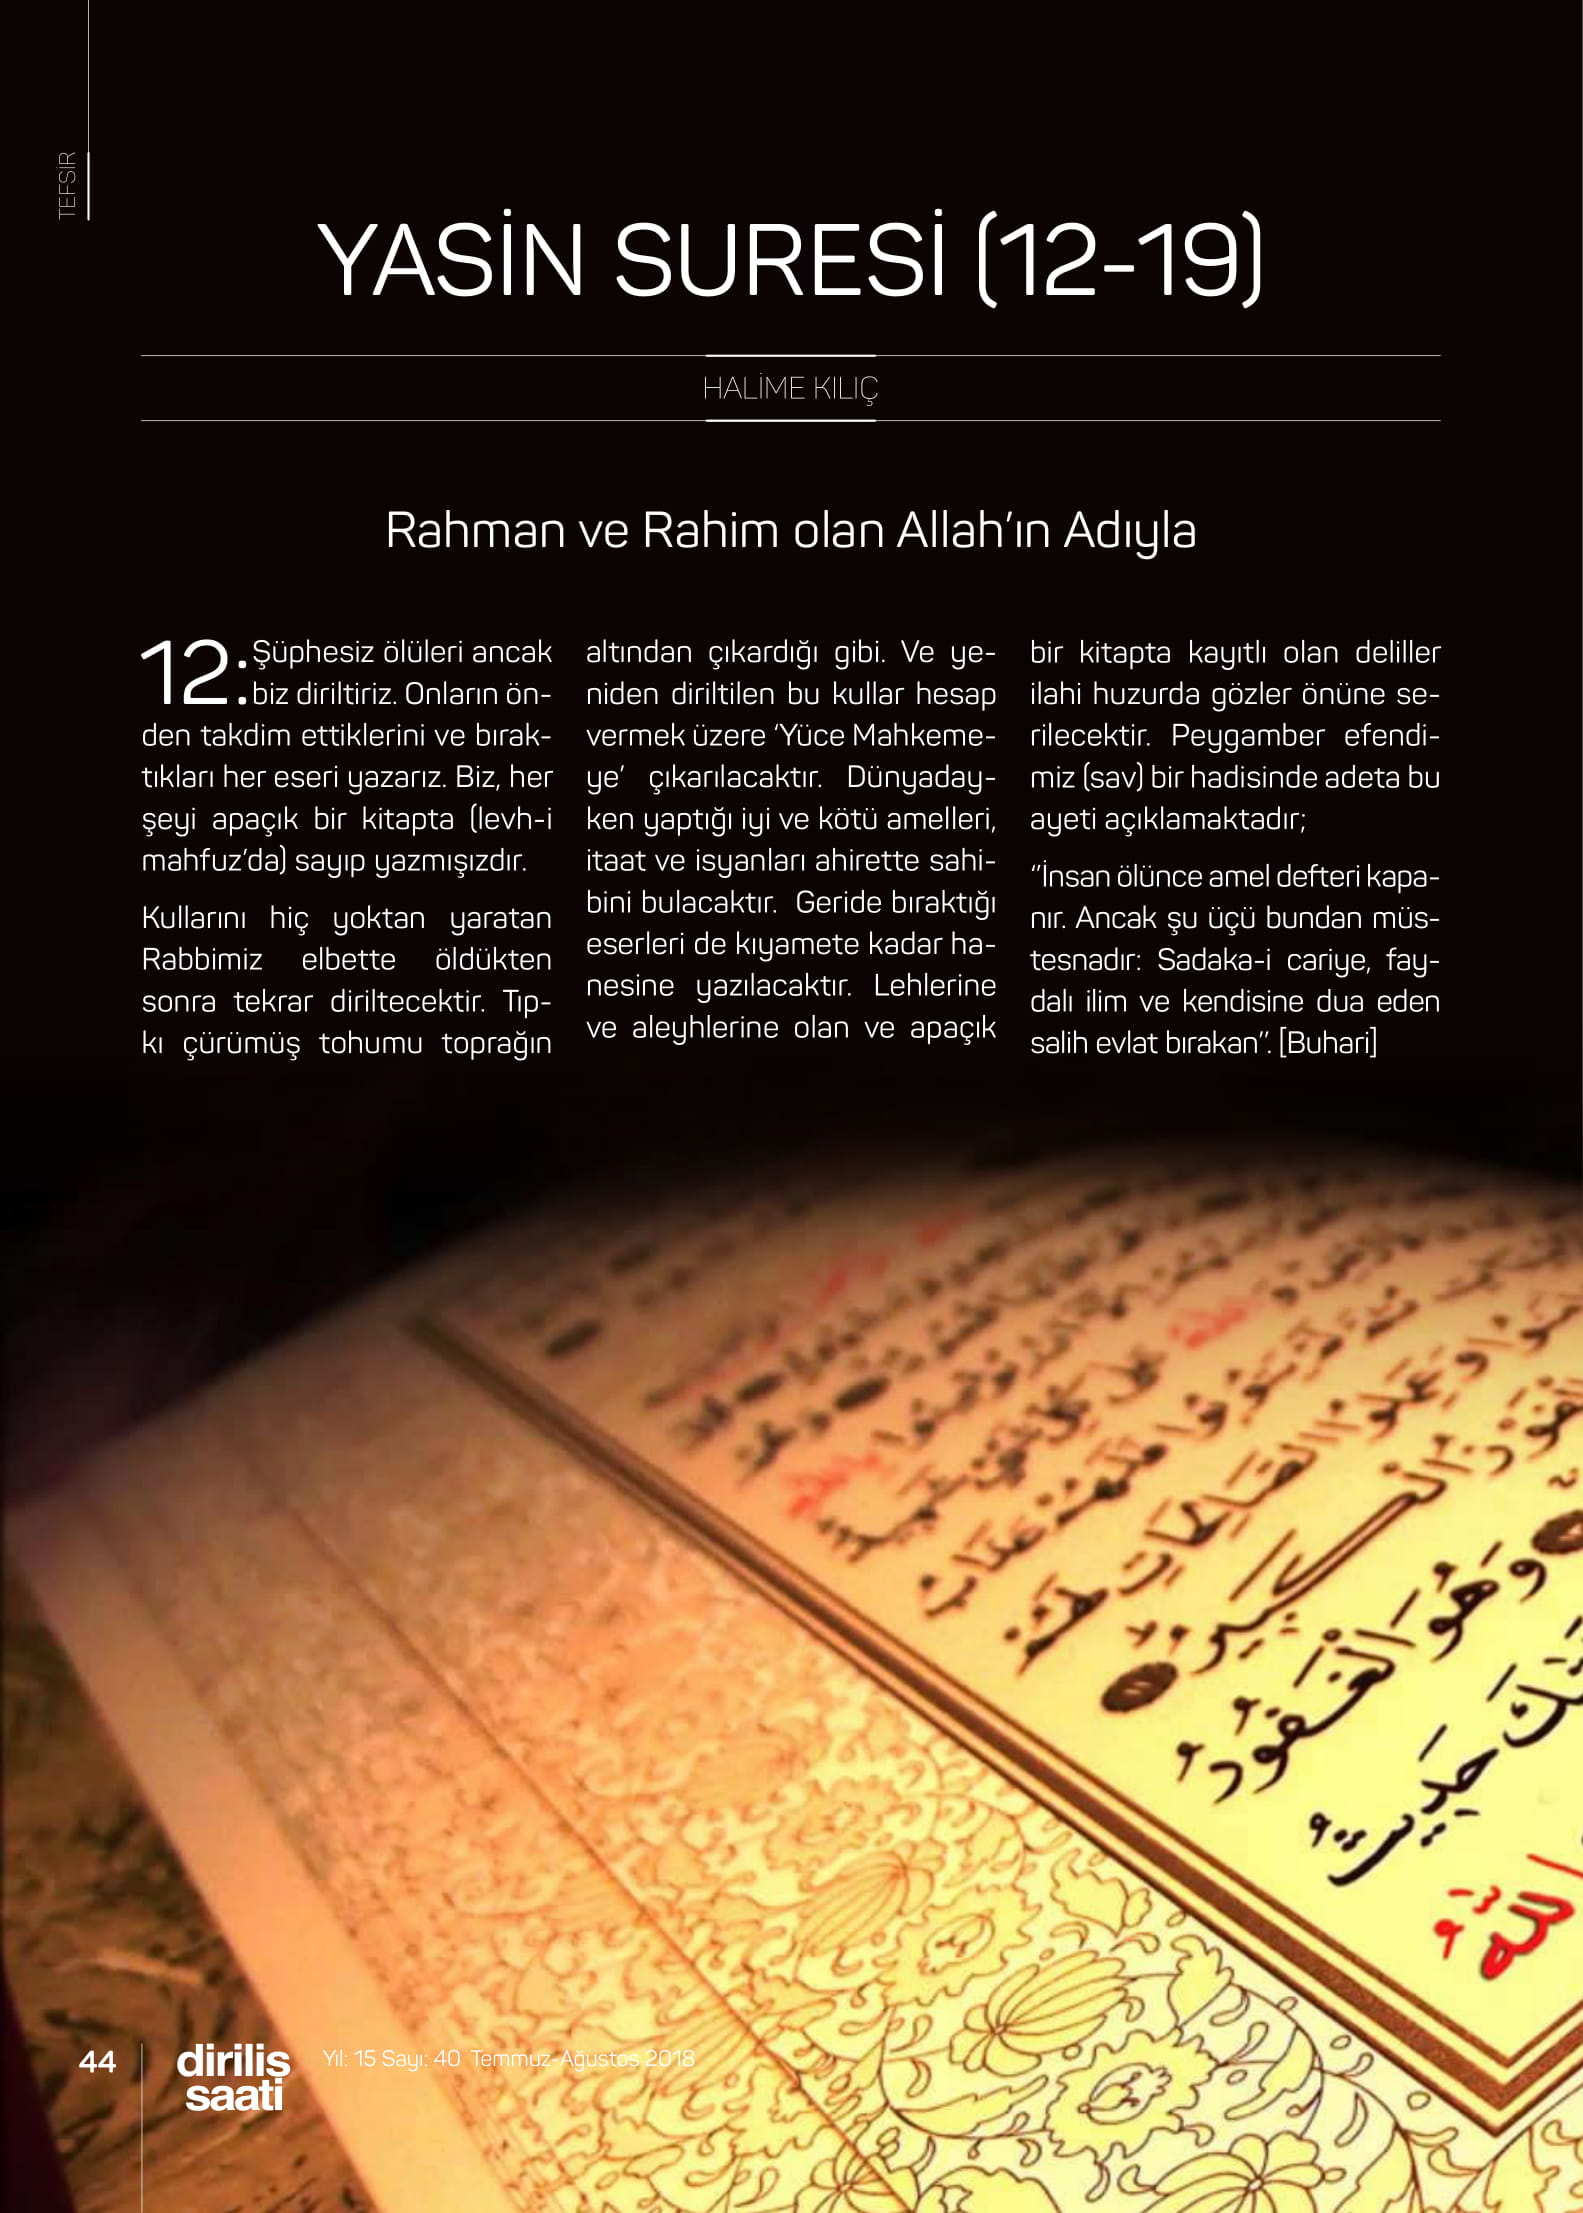 TEFSİR
YASİN SURESİ (12-19)
HALİME KILIÇ
Rahman ve Rahim olan Allah’ın Adıyla
12: Şüphesiz ölüleri ancak
biz diriltiriz. Onların ön-
den takdim ettiklerini ve bırak-
tıkları her eseri yazarız. Biz, her
şeyi apaçık bir kitapta (levh-i
mahfuz’da) sayıp yazmışızdır.
Kullarını hiç yoktan yaratan
Rabbimiz elbette öldükten
sonra tekrar diriltecektir. Tıp-
kı çürümüş tohumu toprağın
altından çıkardığı gibi. Ve ye-
niden diriltilen bu kullar hesap
vermek üzere ‘Yüce Mahkeme-
ye’ çıkarılacaktır. Dünyaday-
ken yaptığı iyi ve kötü amelleri,
itaat ve isyanları ahirette sahi-
bini bulacaktır. Geride bıraktığı
eserleri de kıyamete kadar ha-
nesine yazılacaktır. Lehlerine
ve aleyhlerine olan ve apaçık
bir kitapta kayıtlı olan deliller
ilahi huzurda gözler önüne se-
rilecektir. Peygamber efendi-
miz (sav) bir hadisinde adeta bu
ayeti açıklamaktadır;
“İnsan ölünce amel defteri kapa-
nır. Ancak şu üçü bundan müs-
tesnadır: Sadaka-i cariye, fay-
dalı ilim ve kendisine dua eden
salih evlat bırakan”. [Buhari]
لَهُمْ عَذَابٌ
وَعَمِلُوا الصَّالِحَاتِ لَهُمْ
الْكَبِيرُ
وَهُوَ الْغَفُورُ
حَدِيثُ
اللّٰهُ
44
diriliş
saati
Yıl: 15 Sayı: 40 Temmuz-Ağustos 2018